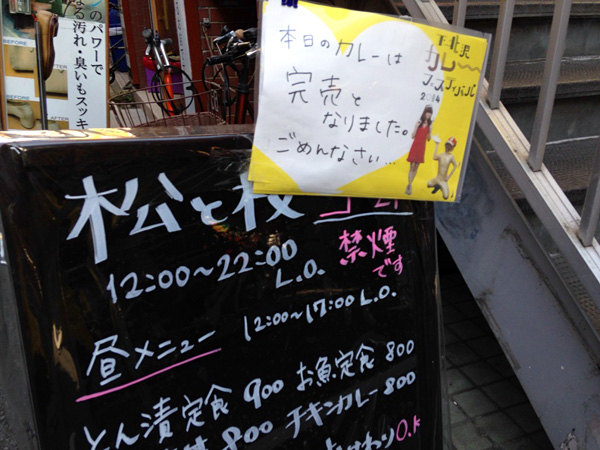 のパワーで
なる汚れ・臭いもスッキ
BEFORE
AFTER
本日のカレーは
完売と
なりました。
ごめんなさい...
下北沢
カレー
フェスティバル
2014
松と枝
12:00~22:00
L.O.
禁煙
です
昼メニュー 12:00~17:00 L.O.
とん漬定食 900 お魚定食 800
800 チキンカレー 800
わり O.K